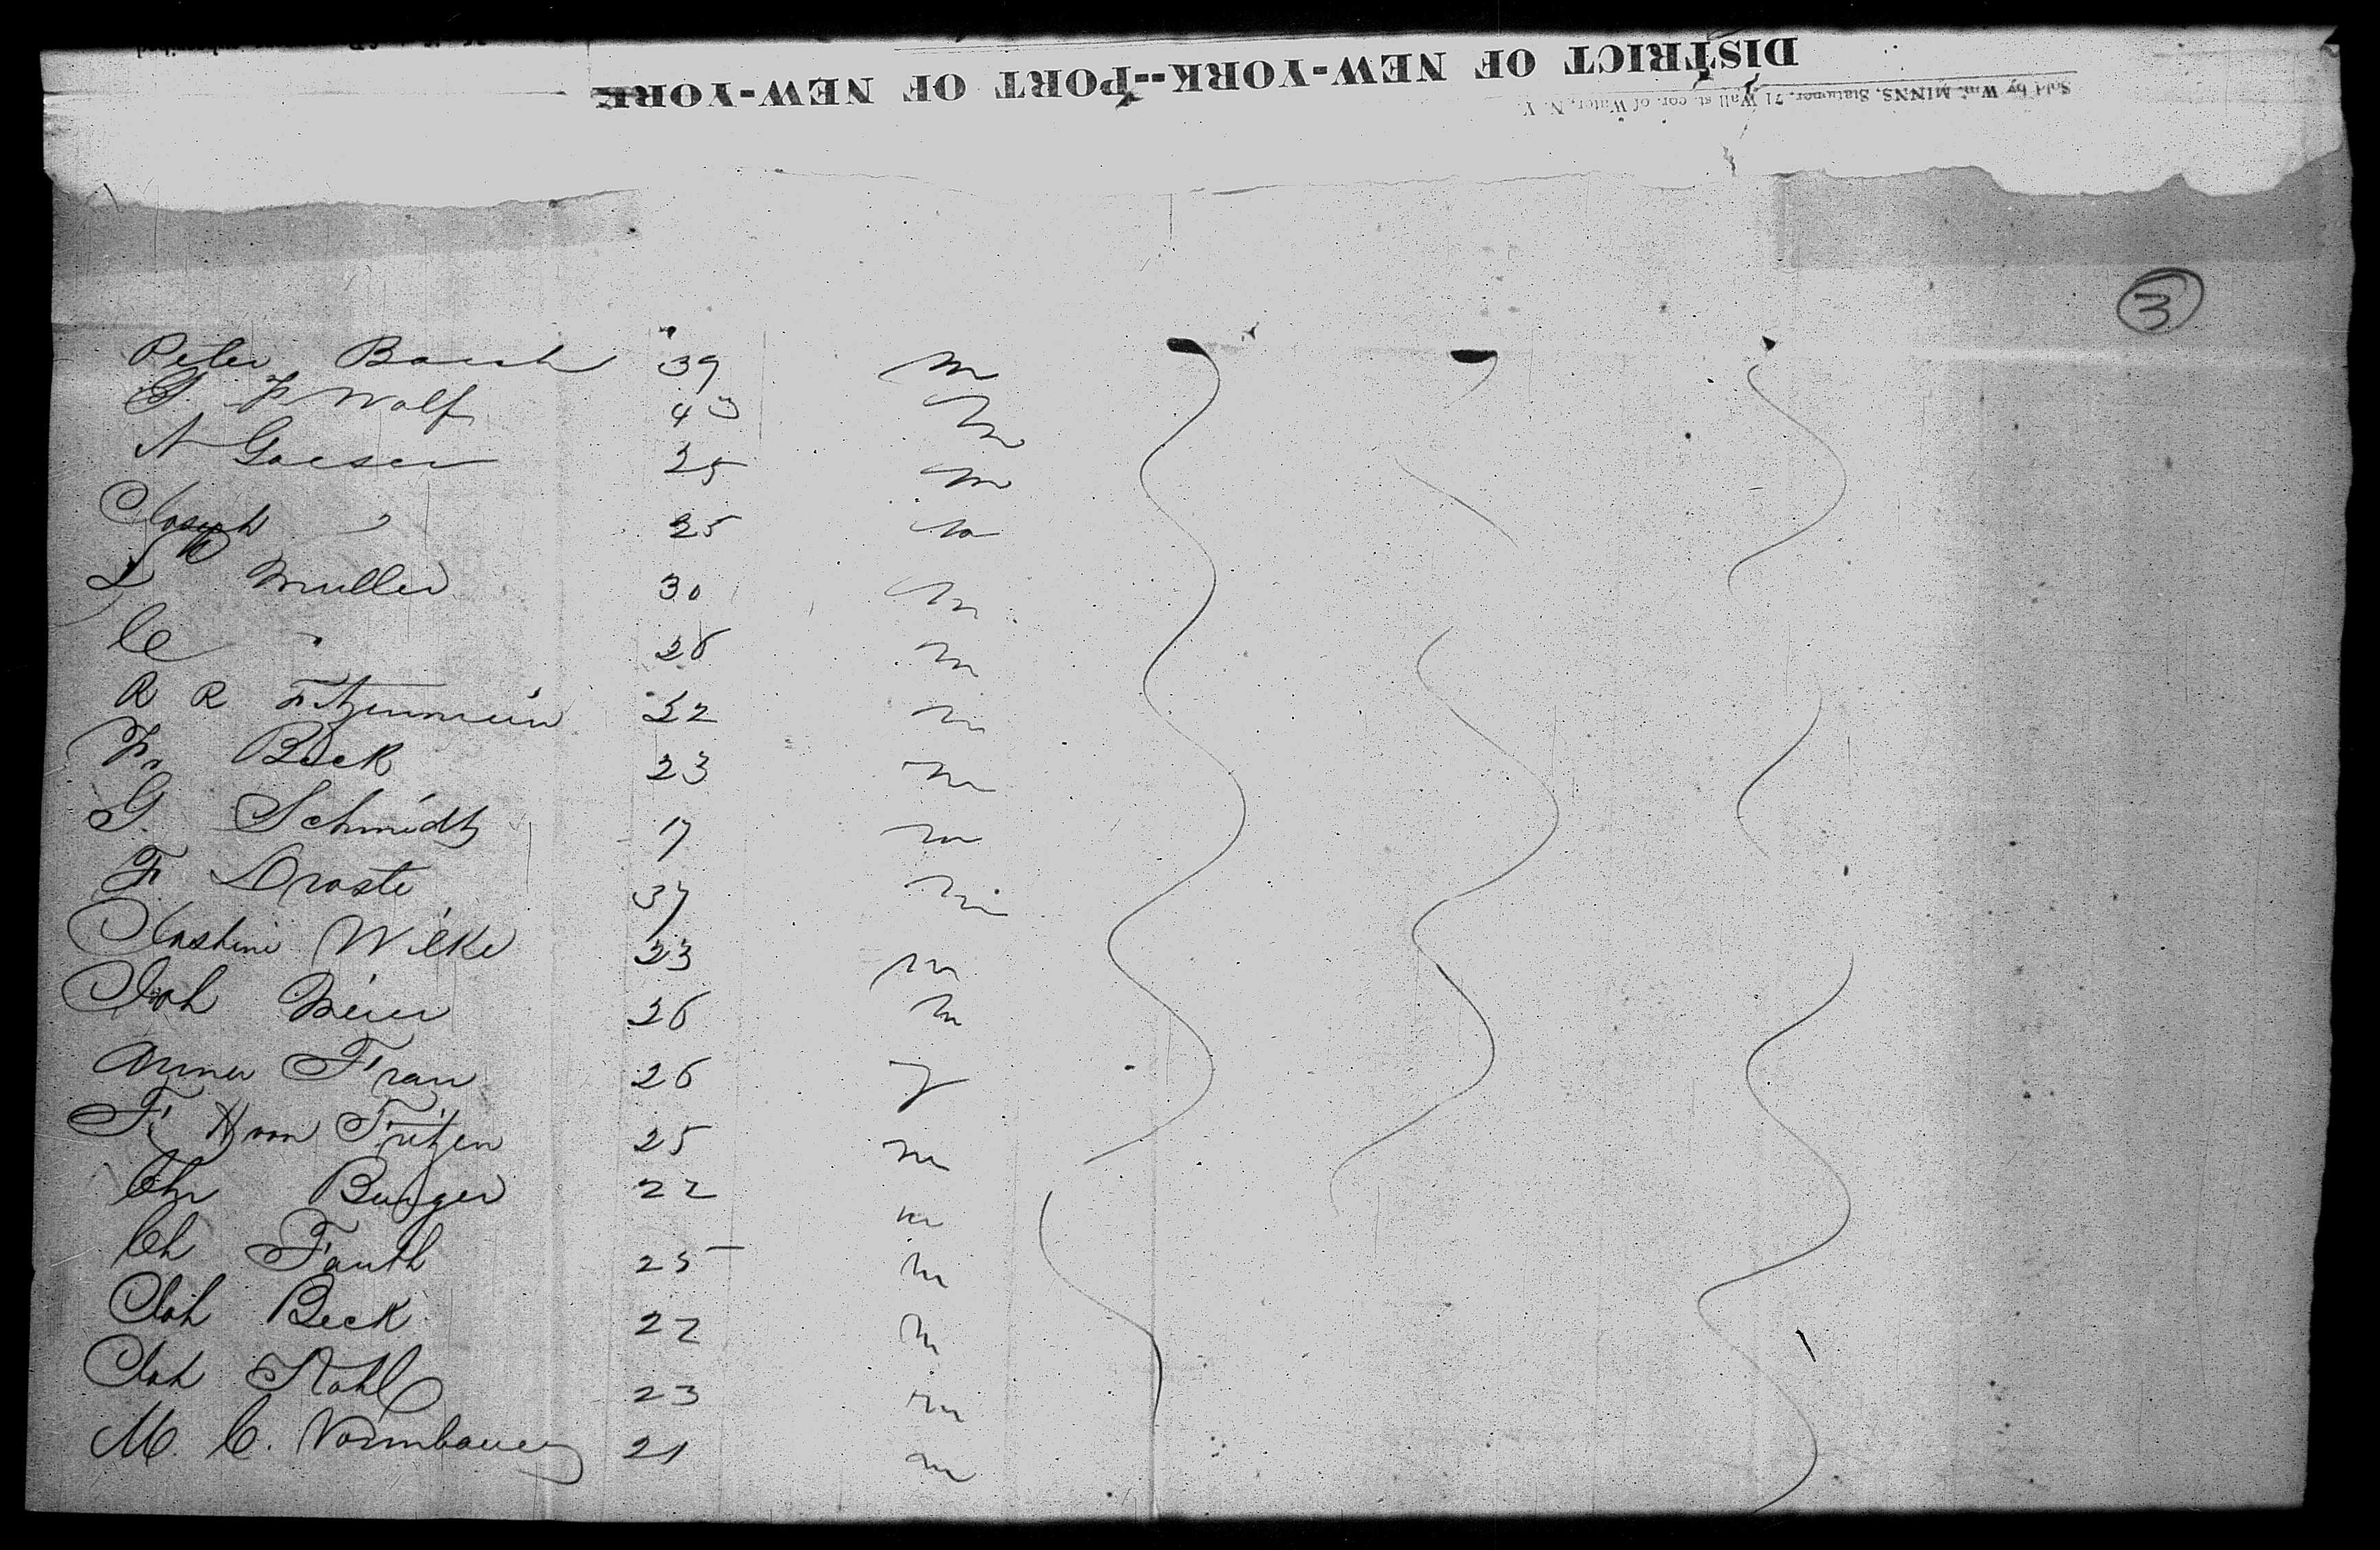 DISTRICT OF NEW-YORK--PORT OF NEW-YORK
Sold by Wm. MINNS, Stationer, 71 Wall st. cor. of Water, N. Y.
3
Peter Bosch 39 m
G. F Wolf 43 m
A Goeser 25 m
Joseph " 25 m
L Muller 30 m
C " 26 m
R R 22 m
Fr Beck 23 m
G. Schmidt 17 m
F Droste 37 m
Wilke 23 m
Joh Meier 26 m
Anna Frau 26 f
F. H von Fritzen 25 m
Chr Burger 22 m
Ch Fauth 25 m
Joh Beck 22 m
Joh Stahl 23 m
M. C. Vormbaum 21 m